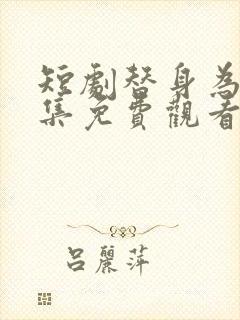 短劇替身為
集免費觀看
呂麗萍